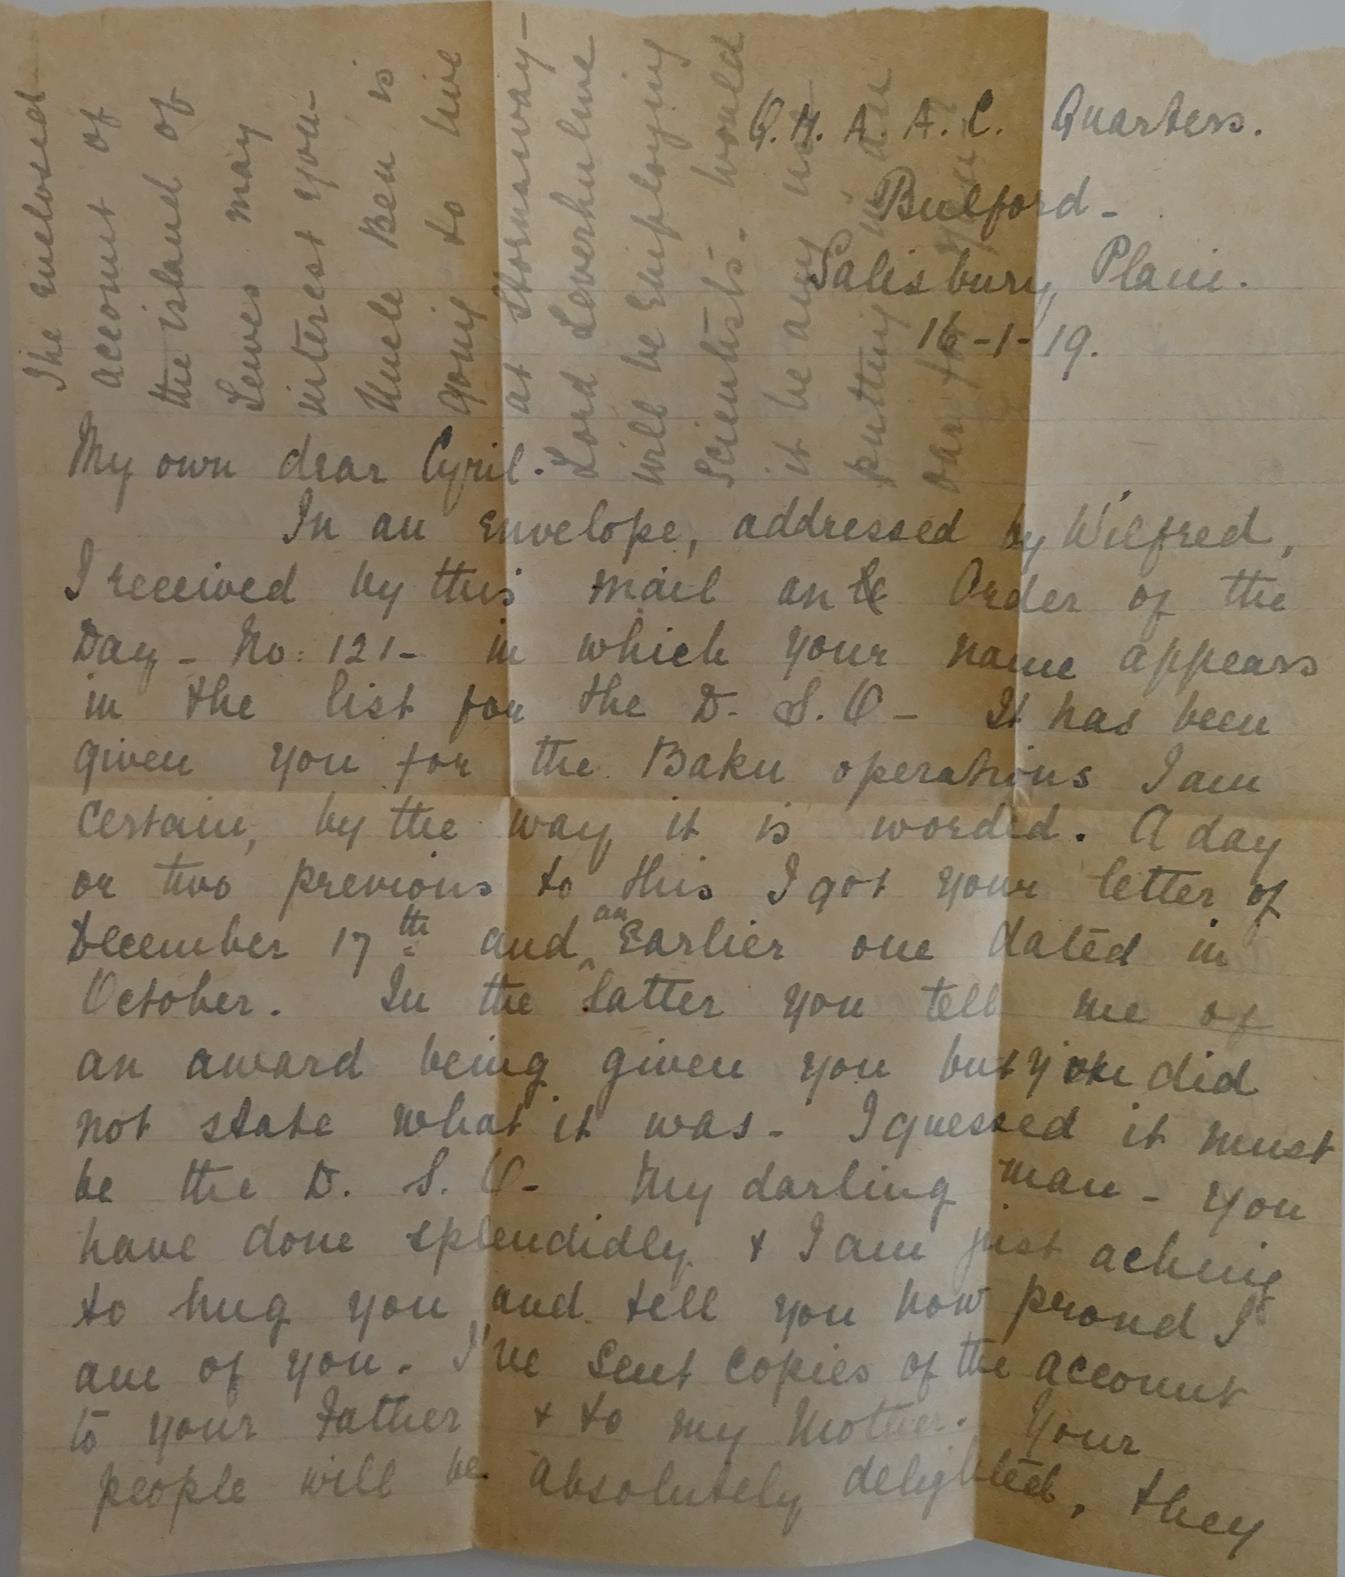 Q. M. A. A. C. Quarters.
Bulford -
Salisbury Plain.
16 - 1 - 19.
My own dear Cyril.
In an Envelope, addressed by Wilfred,
I received by this mail an Order of the
Day - No: 121 - in which your name appears
in the list for the D. S. O - It has been
given you for the Baku operations I am
certain, by the way it is worded. A day
or two previous to this I got your letter of
December 17th and an Earlier one dated in
October. In the latter you tell me of
an award being given you but you did
not state what it was - I guessed it must
be the D. S. O - My darling man - you
have done splendidly & I am just aching
to hug you and tell you how proud I
am of you. I've sent copies of the account
to your Father & to my Mother. Your
people will be absolutely delighted, they
The enclosed
account of
the island of
Lewes may
interest you -
Uncle Ben is
going to live
at Stornaway -
Lord Leverhulme
will be Employing
Scientists. Would
it be any use
putting in an
oar for you?